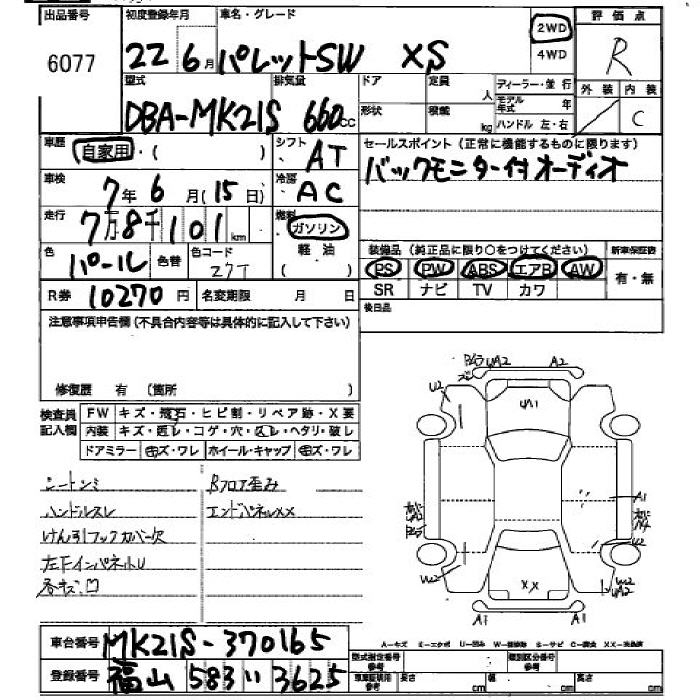 出品番号 初度登録年月 車名・グレード 2WD 評価点
6077 22 6月 パレットSW XS 4WD R
型式 排気量 ドア 定員 人 ディーラー・並行 外装 内装
DBA-MK21S 660cc 形状 積載 kg モデル年式 年 C
ハンドル 左・右
車歴 自家用・( ) シフト AT セールスポイント(正常に機能するものに限ります)
車検 7年 6月(15日) 冷房 AC バックモニター付オーディオ
走行 7万8千101km 燃料 ガソリン
軽油
色 パール 色替 色コード Z7T ( ) 装備品(純正品に限り○をつけてください) 新車保証書
PS PW ABS エアB AW 有・無
R券 10270円 名変期限 月 日 SR ナビ TV カワ
注意事項申告欄(不具合内容等は具体的に記入して下さい) 後日品
修復歴 有 (箇所 )
検査員記入欄 FW キズ・飛石・ヒビ割・リペア跡・X要
内装 キズ・スレ・コゲ・穴・ヘタリ・破レ
ドアミラー キズ・ワレ ホイール・キャップ キズ・ワレ
シートシミ Bフロア歪み
ハンドルスレ エンドパネルXX
けん引フックカバー欠
左下インパネ小U
車台番号 MK21S-370165
登録番号 福山 583 い 3625
UA2 A2
W2 UA1
A1
W2
W2 XX W2
UA2
A1 A1
A-キズ E-エクボ U-凹み W-補修跡 S-サビ C-腐食 XX-交換済
型式指定番号 参考 類別区分番号 参考
車検証記入 参考 長さ cm 幅 cm 高さ cm